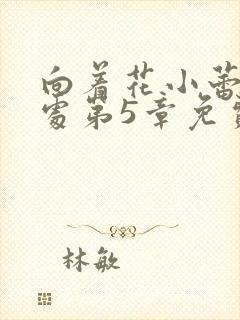 向着花小蕾
处第5章免费
林敏